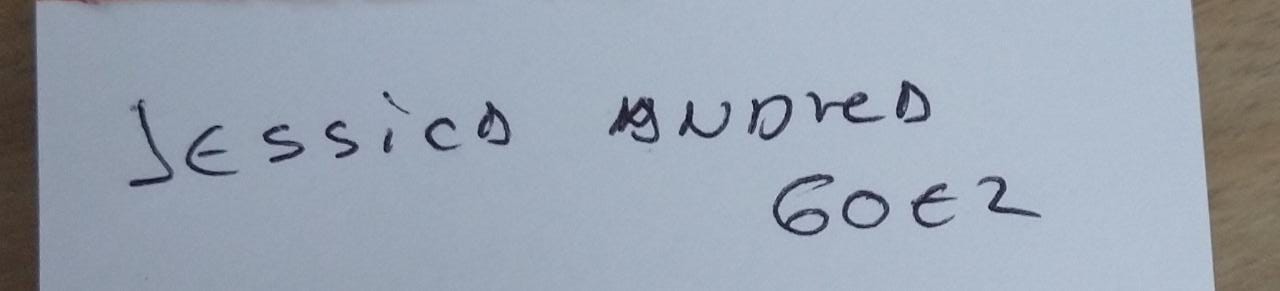 Jessica Andrea
Goez